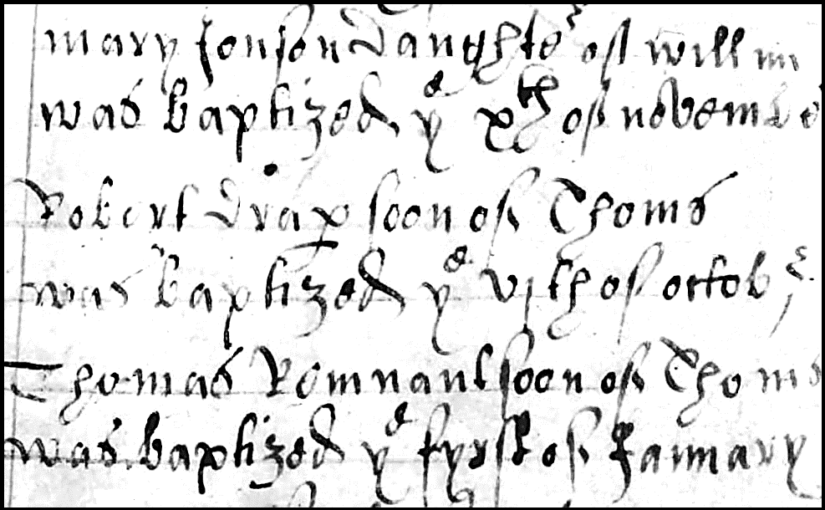 mary Jonson daughter of willm
was baptized ye xth of novembe
Robert Drap soon of Thoms
was baptized ye vjth of octobr
Thomas Remnant soon of Thoms
was baptized ye fyrst of January